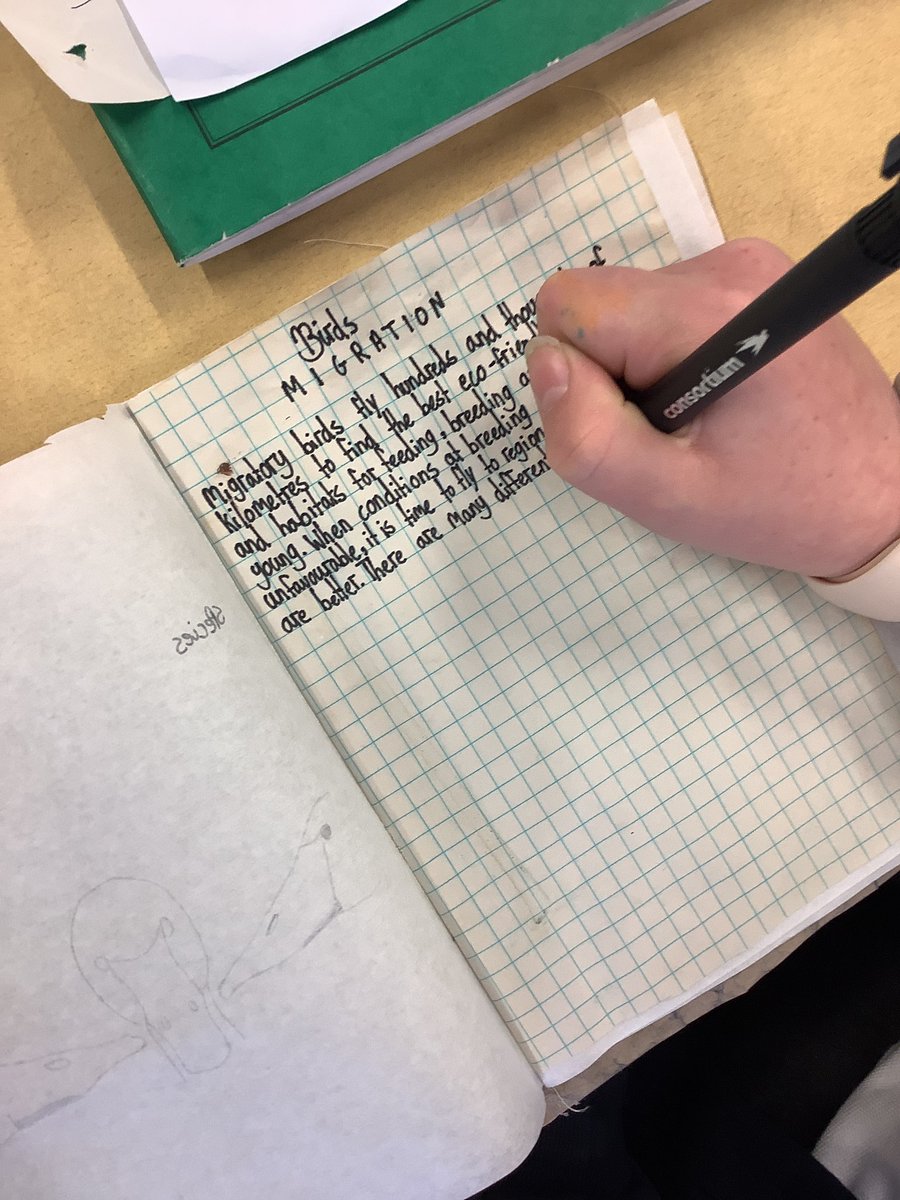 Birds
MIGRATION
Migratory birds fly hundreds and of
kilometres to find the best
and habitats for feeding, breeding
young. When conditions at breeding
unfavourable, it is time to fly to
are better. There are many
species
consortium